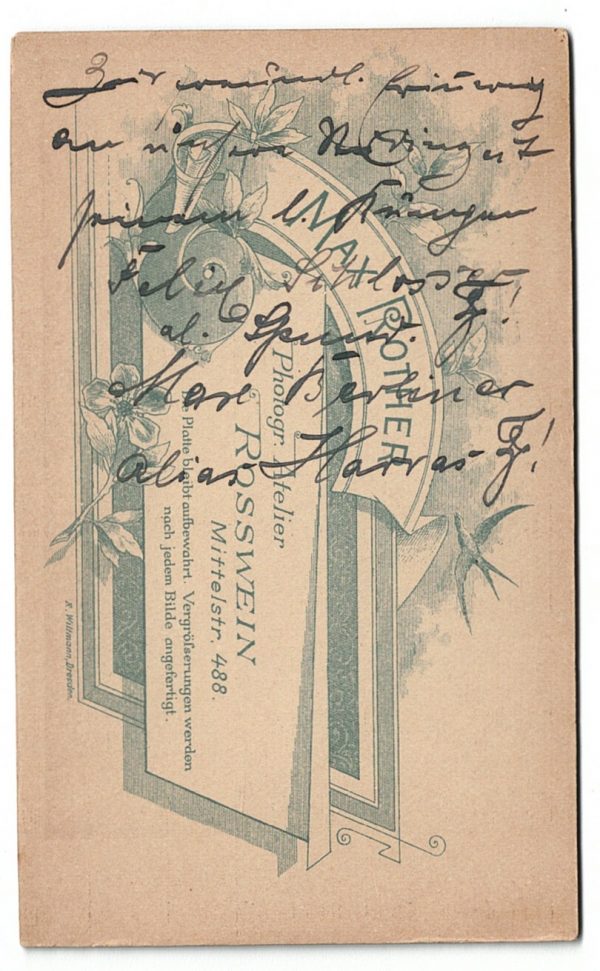 Zur freundl. Erinnerg
an unsere
seinem l.
Felix Schlosser Z!
al. Spund.
Max Berliner
alias Harras Z!
MAX ROTHER
Photogr. Atelier
ROSSWEIN
Mittelstr. 488.
Platte bleibt aufbewahrt. Vergrößerungen werden
nach jedem Bilde angefertigt.
K. Willmann, Dresden.